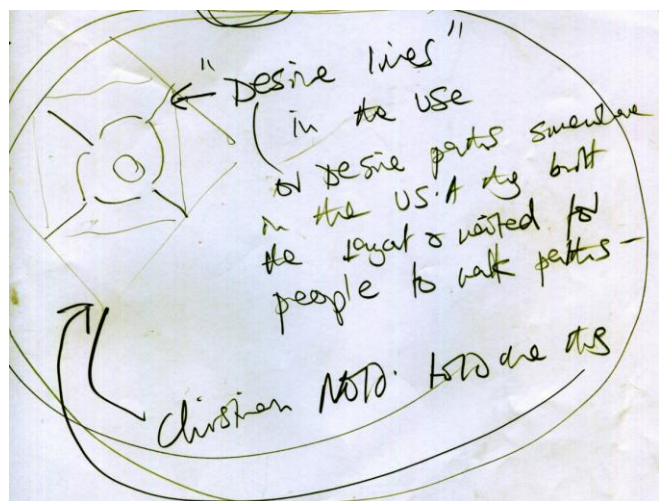 "Desire lines"
in the use
or Desire paths somewhere
in the US.A they built
the layout & waited for
people to walk paths –
Christian told me this